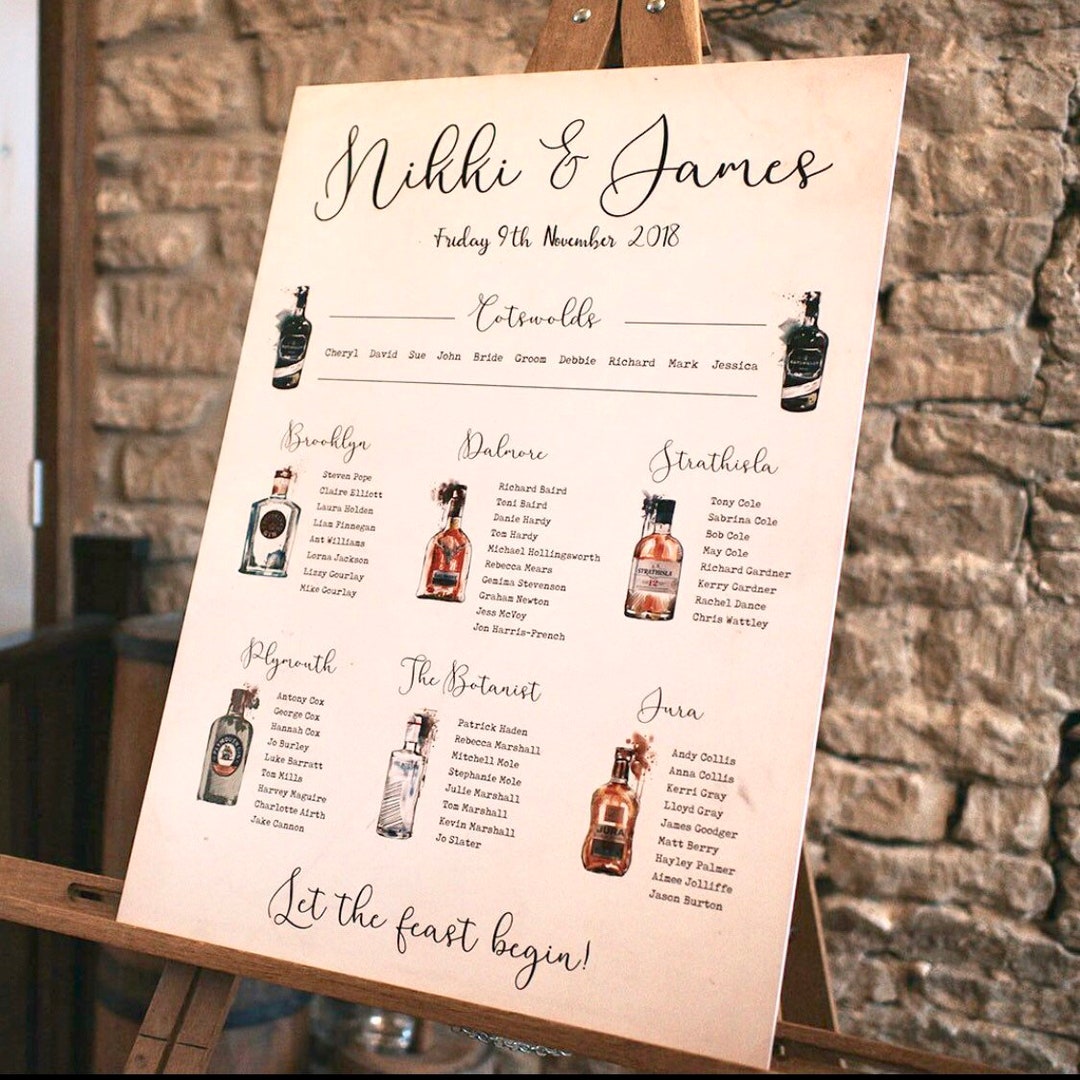 Nikki & James
Friday 9th November 2018
Cotswolds
Cheryl David Sue John Bride Groom Debbie Richard Mark Jessica
Brooklyn
Steven Pope
Claire Elliott
Laura Holden
Liam Finnegan
Ant Williams
Lorna Jackson
Lizzy Gourlay
Mike Gourlay
Dalmore
Richard Baird
Toni Baird
Danie Hardy
Tom Hardy
Michael Hollingsworth
Rebecca Mears
Gemima Stevenson
Graham Newton
Jess McVoy
Jon Harris-French
Strathisla
STRATHISLA
12
Tony Cole
Sabrina Cole
Bob Cole
May Cole
Richard Gardner
Kerry Gardner
Rachel Dance
Chris Wattley
Plymouth
Antony Cox
George Cox
Hannah Cox
Jo Burley
Luke Barratt
Tom Mills
Harvey Maguire
Charlotte Airth
Jake Cannon
The Botanist
Patrick Haden
Rebecca Marshall
Mitchell Mole
Stephanie Mole
Julie Marshall
Tom Marshall
Kevin Marshall
Jo Slater
Jura
JURA
Andy Collis
Anna Collis
Kerri Gray
Lloyd Gray
James Goodger
Matt Berry
Hayley Palmer
Aimee Jolliffe
Jason Burton
Let the feast begin!